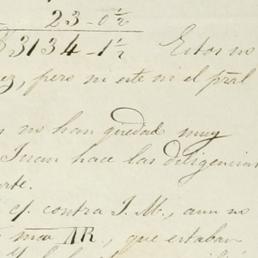 23-0½
$3134-1½ Estos no
ez, pero ni este ni el pral
no han quedado muy
Juan hace las diligencias
rte.
ef. contra J. M., aun no
mar AR, que estaban